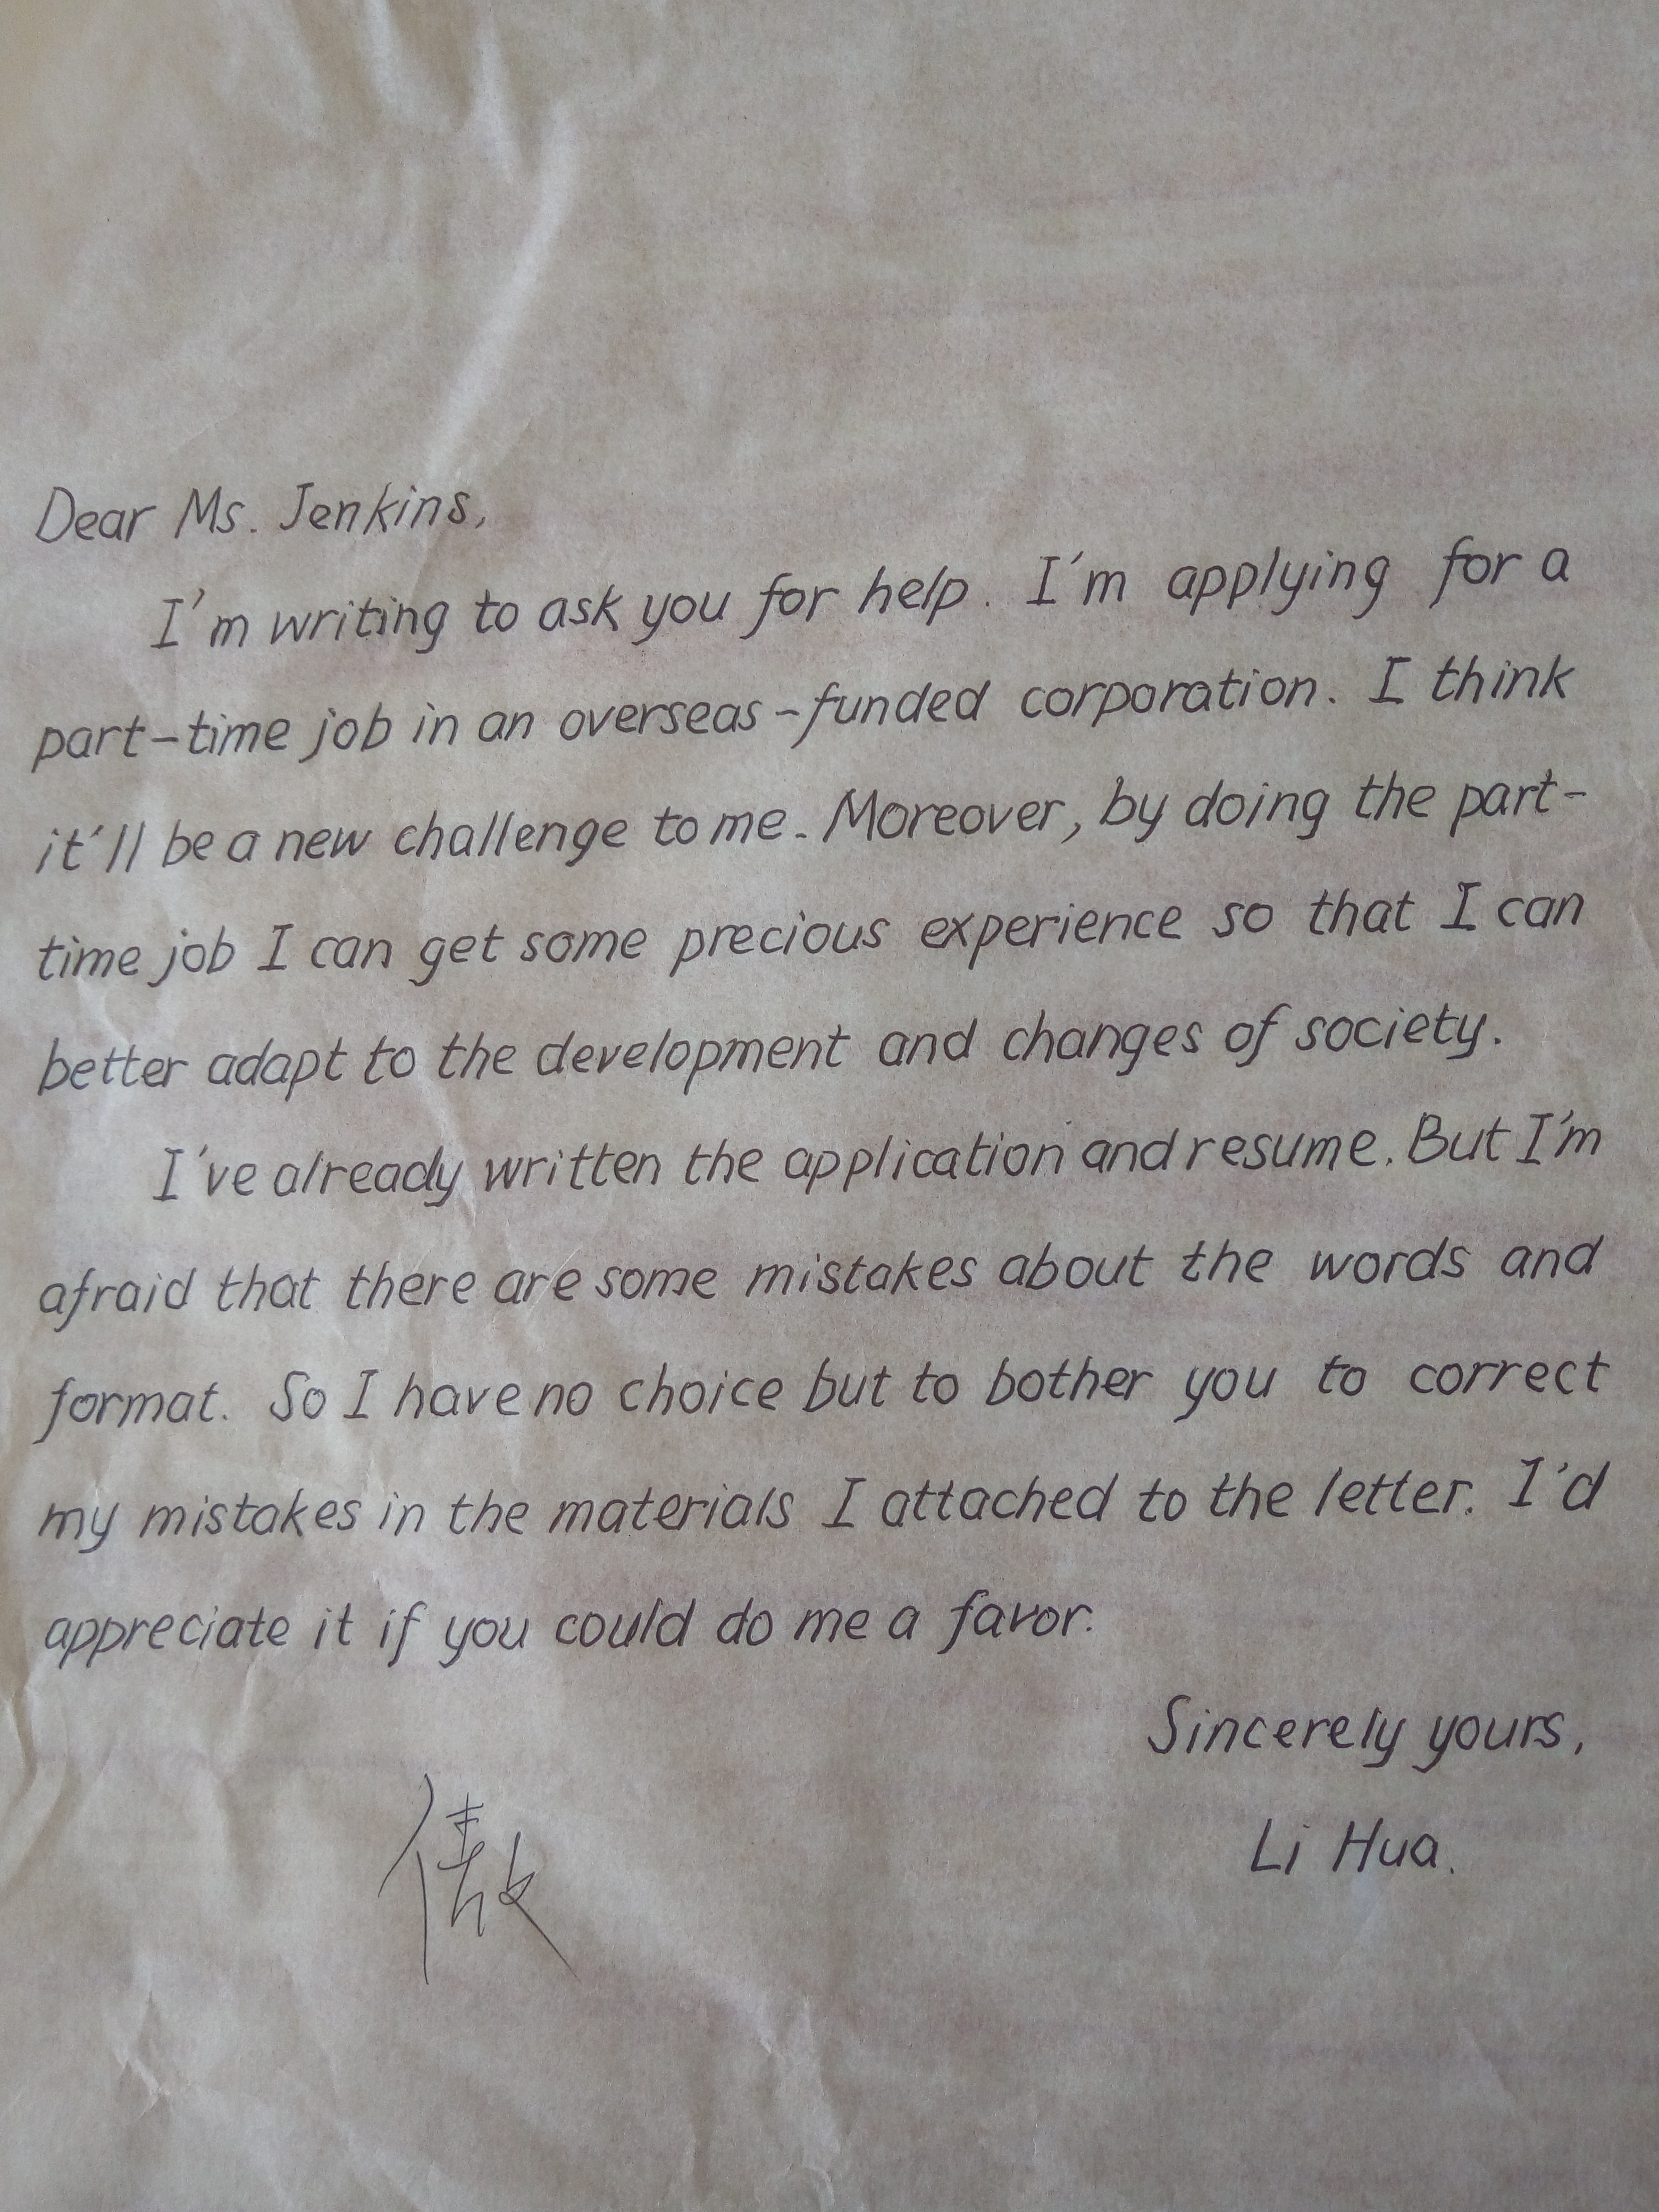 Dear Ms. Jenkins,
I'm writing to ask you for help. I'm applying for a
part-time job in an overseas-funded corporation. I think
it'll be a new challenge to me. Moreover, by doing the part-
time job I can get some precious experience so that I can
better adapt to the development and changes of society.
I've already written the application and resume. But I'm
afraid that there are some mistakes about the words and
format. So I have no choice but to bother you to correct
my mistakes in the materials I attached to the letter. I'd
appreciate it if you could do me a favor.
Sincerely yours,
Li Hua.
傲